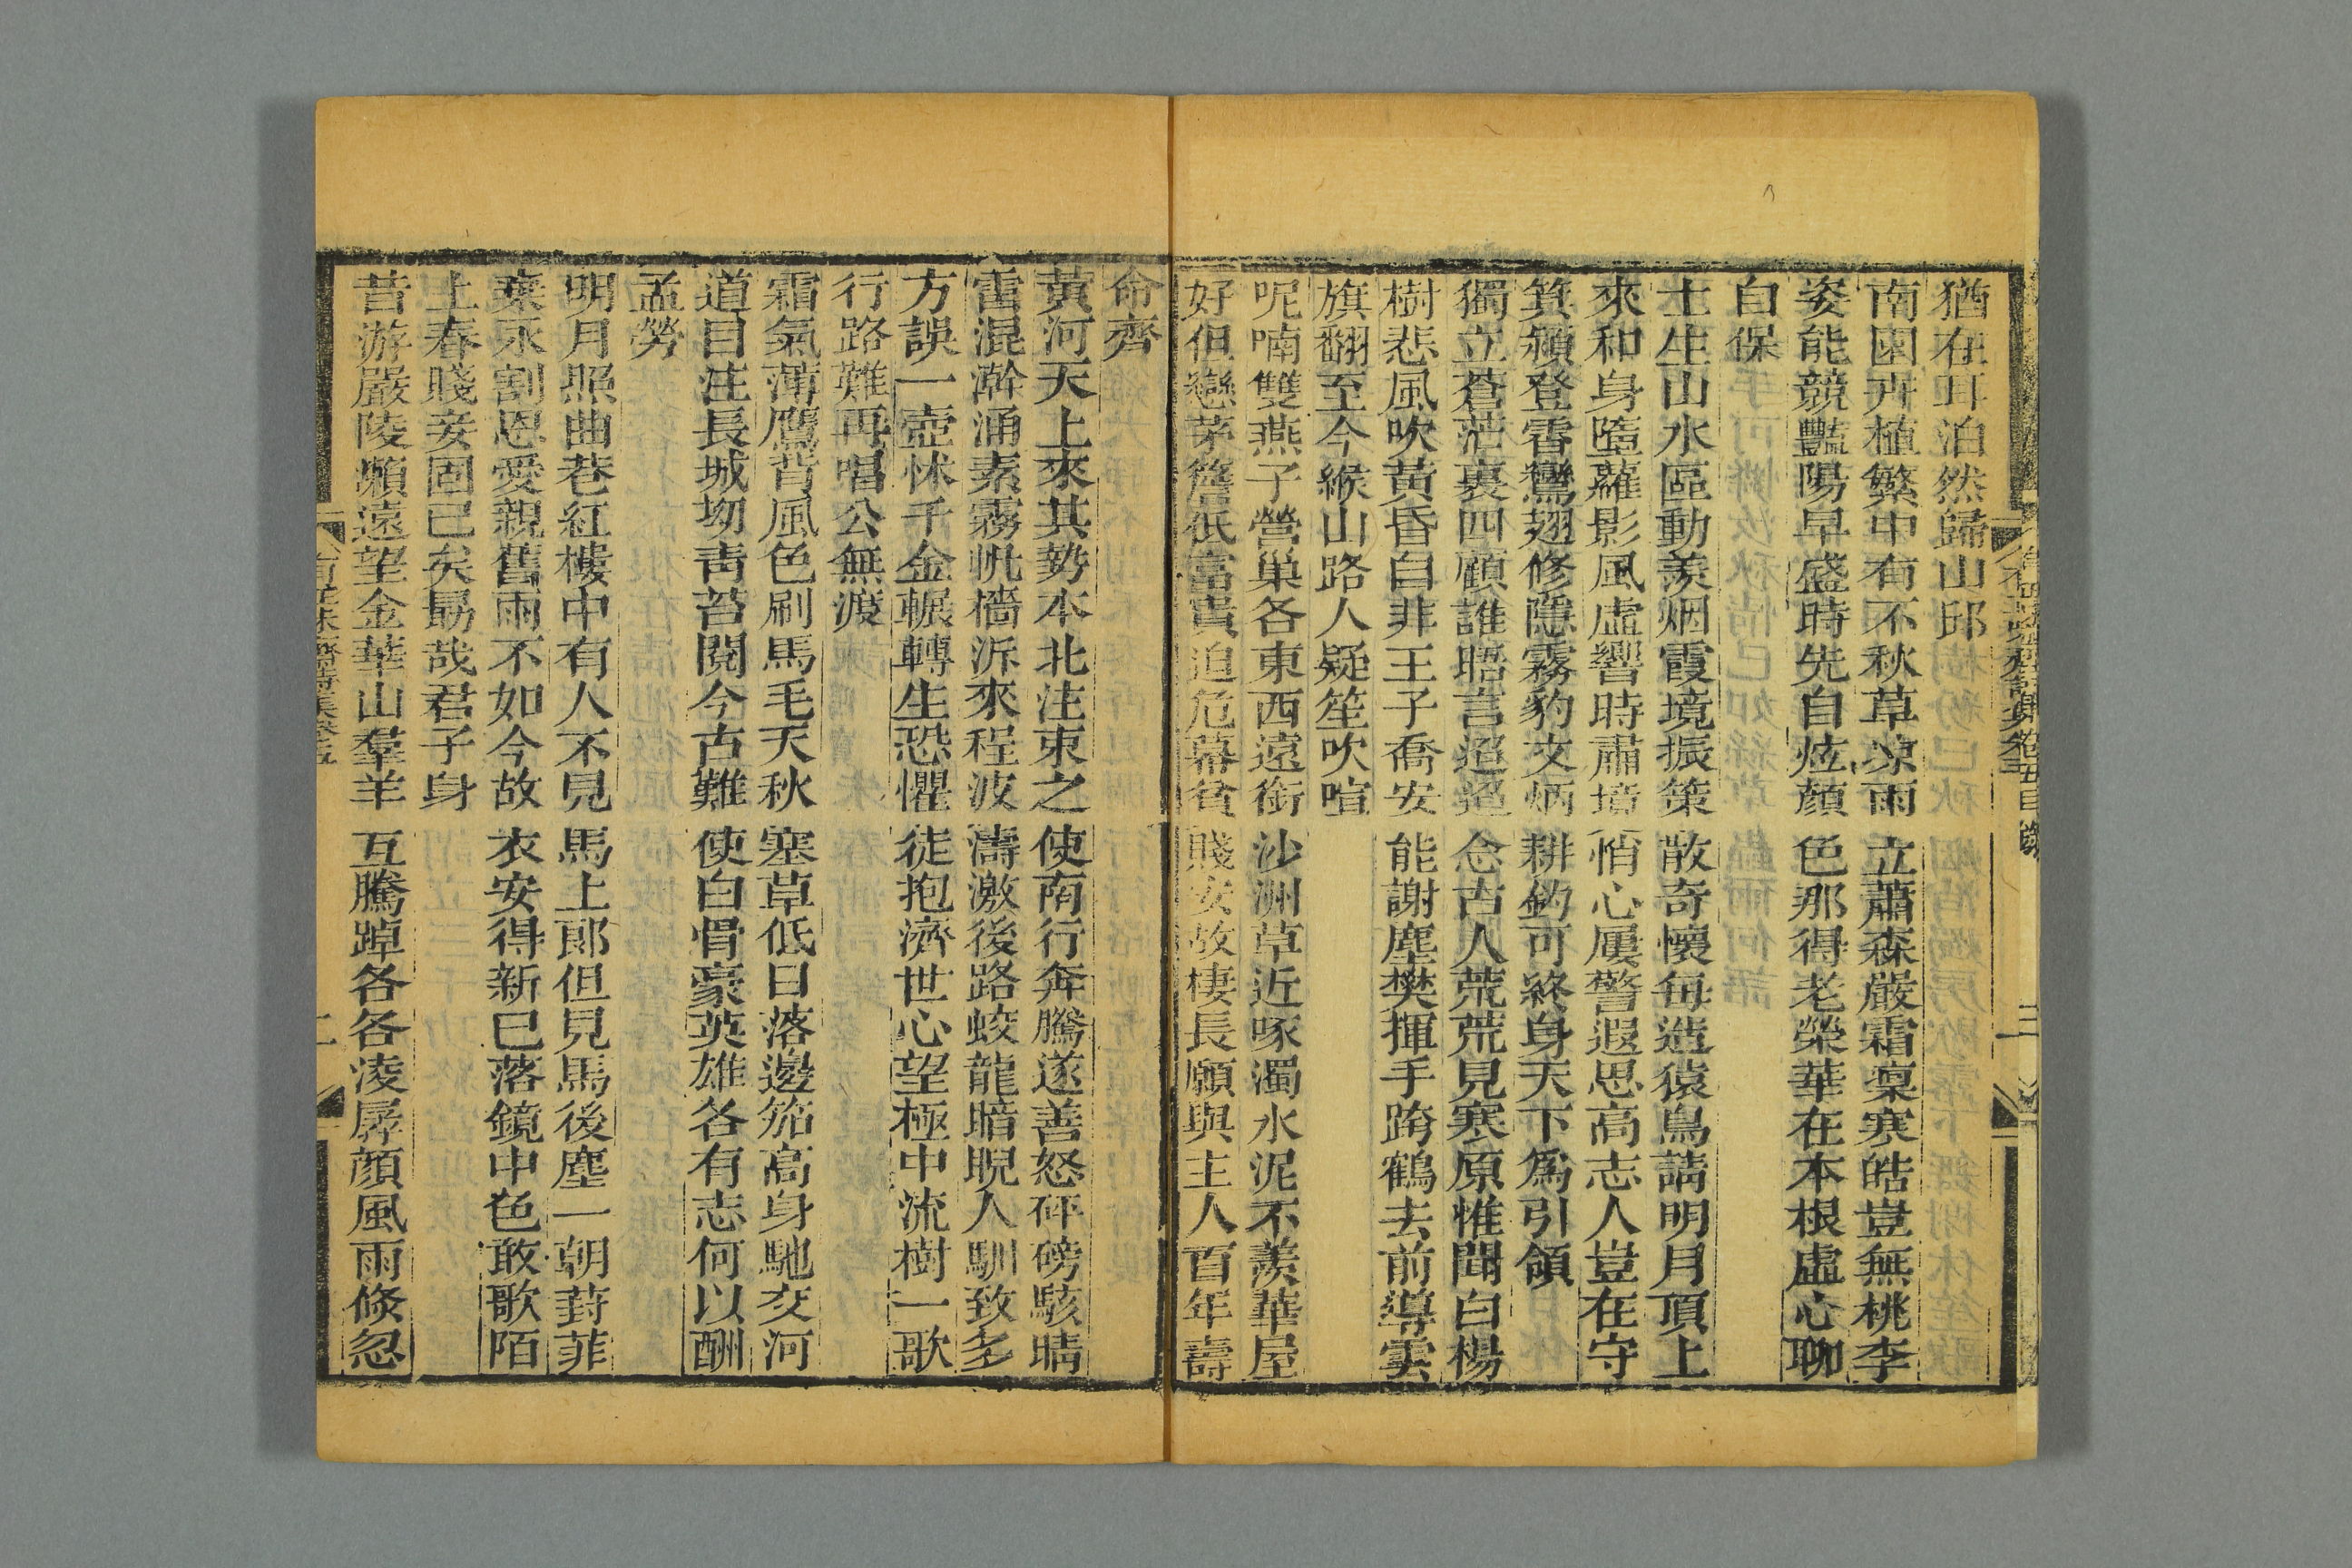 猶在耳泊然歸山邱
南園卉植繁中有不秋草凉雨立蕭森嚴霜稟寒皓豈無桃李
姿能競豔陽早盛時先自炫顏色那得老榮華在本根虛心聊
自保
士生山水區動羨烟霞境振策散奇懷每造猿鳥請明月頂上
來和身墮蘿影風虛響時肅境悄心屢警遐思高志人豈在守
箕潁登霄鸞翅修隱霧豹文炳耕釣可終身天下爲引領
獨立蒼茫裏四顧誰晤言迢迢念古人荒荒見寒原惟聞白楊
樹悲風吹黃昏自非王子喬安能謝塵樊揮手跨鶴去前導雲
旗翻至今緱山路人疑笙吹喧
呢喃雙燕子營巢各東西遠銜沙洲草近啄濁水泥不羨華屋
好但戀茅簷低富貴迫危幕貧賤安故棲長願與主人百年壽
命齊
黃河天上來其勢本北注東之使南行奔騰遂善怒砰磅駭晴
雷混澣涌素霧帆檣泝來程波濤激後路蛟龍暗睨人馴致多
方誤一壺怵千金輾轉生恐懼徒抱濟世心望極中流樹一歌
行路難再唱公無渡
霜氣薄鷹背風色刷馬毛天秋塞草低日落邊笳高身馳交河
道目注長城坳靑苔閱今古難使白骨豪英雄各有志何以酬
孟勞
明月照曲巷紅樓中有人不見馬上郞但見馬後塵一朝葑菲
棄永割恩愛親舊雨不如今故衣安得新已落鏡中色敢歌陌
上春賤妾固已矣勗哉君子身
昔游嚴陵瀨遠望金華山羣羊互騰踔各各淩孱顏風雨倏忽